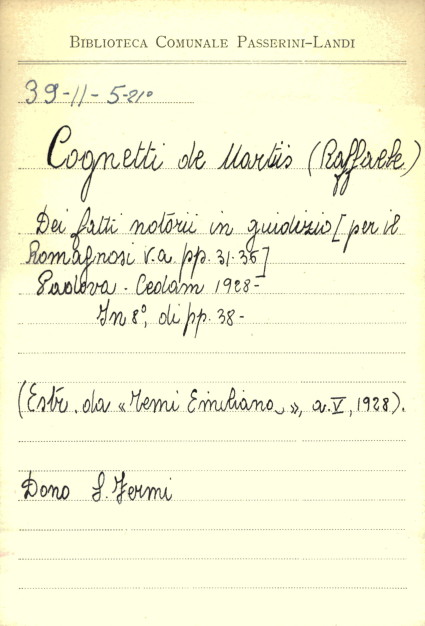 BIBLIOTECA COMUNALE PASSERINI-LANDI
39-11-5-21°
Cognetti de Martiis (Raffaele)
Dei fatti notórii in giudizio [per il
Romagnosi v.a. pp. 31-36]
Padova - Cedam 1928-
In 8°, di pp. 38-
(Estr. da « Temi Emiliana », a. V, 1928).
Dono S. Fermi